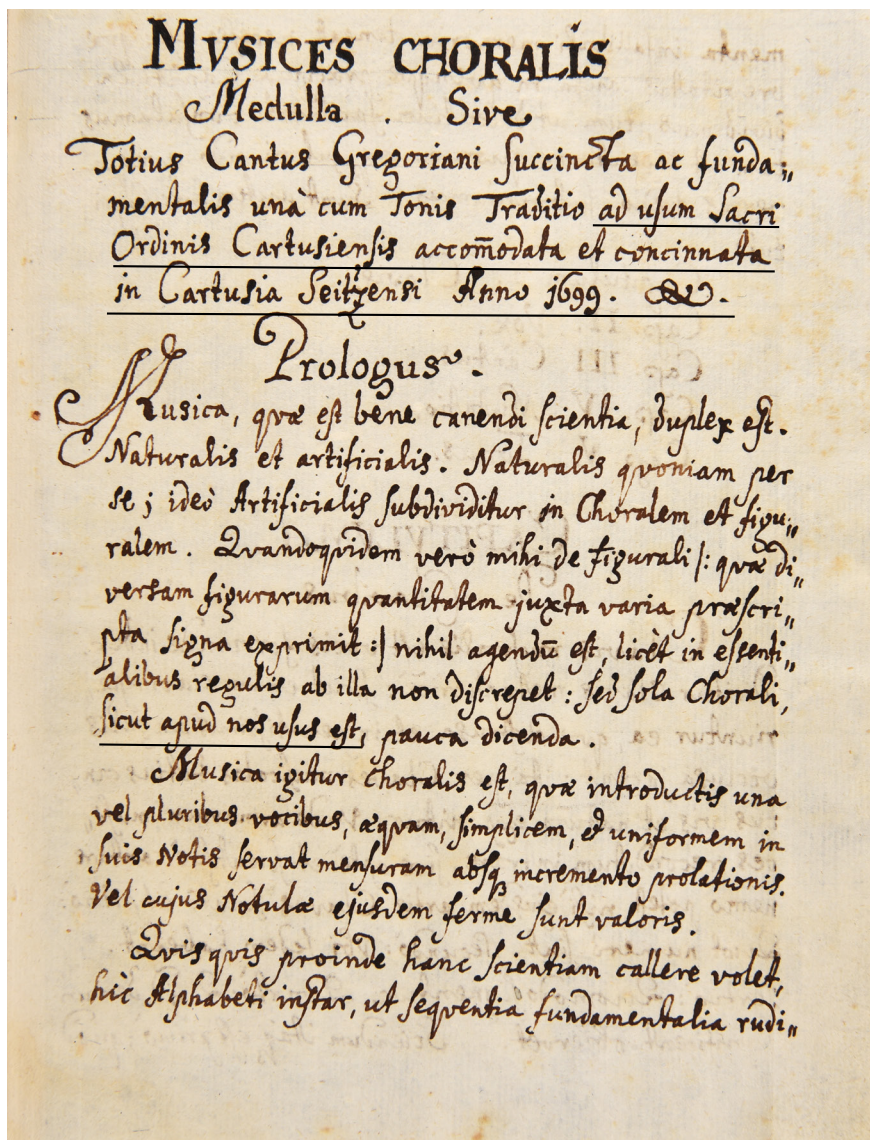 MVSICES CHORALIS
Medulla . Sive
Totius Cantus Gregoriani Succincta ac funda„
mentalis unà cum Tonis Traditio ad usum Sacri
Ordinis Cartusiensis accom̄odata et concinnata
in Cartusia Seitzensi Anno 1699.
Prologus.
Musica, quæ est bene canendi scientia, duplex est.
Naturalis et artificialis. Naturalis quoniam per
se; ideò Artificialis subdividitur in Choralem et figu„
ralem. Quandoquidem verò mihi de figurali |: quæ di„
versam figurarum quantitatem juxta varia præscri„
pta signa exprimit :| nihil agendū est, licèt in essenti„
alibus regulis ab illa non discrepet : sed sola Chorali,
sicut apud nos usus est, pauca dicenda.
Musica igitur Choralis est, quæ introductis una
vel pluribus vocibus, æquam, simplicem, et uniformem in
suis Notis servat mensuram absq; incremento prolationis.
Vel cujus Notulæ ejusdem ferme sunt valoris.
Quisquis proinde hanc scientiam callere volet,
hic Alphabeti instar, ut sequentia fundamentalia rudi„